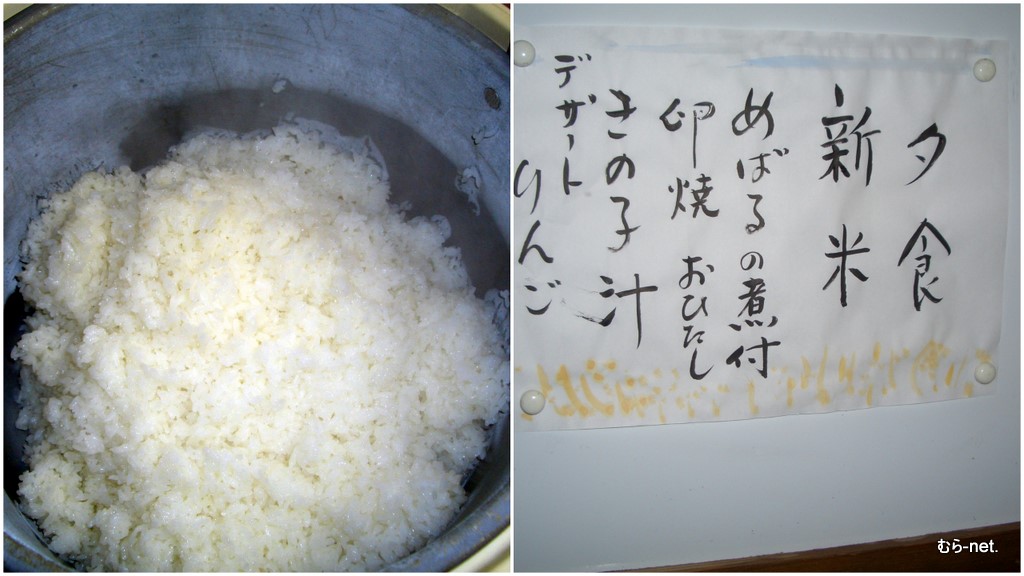 夕食
新米
めばるの煮付
卵焼 おひたし
きの子汁
デザート
りんご
むら-net.